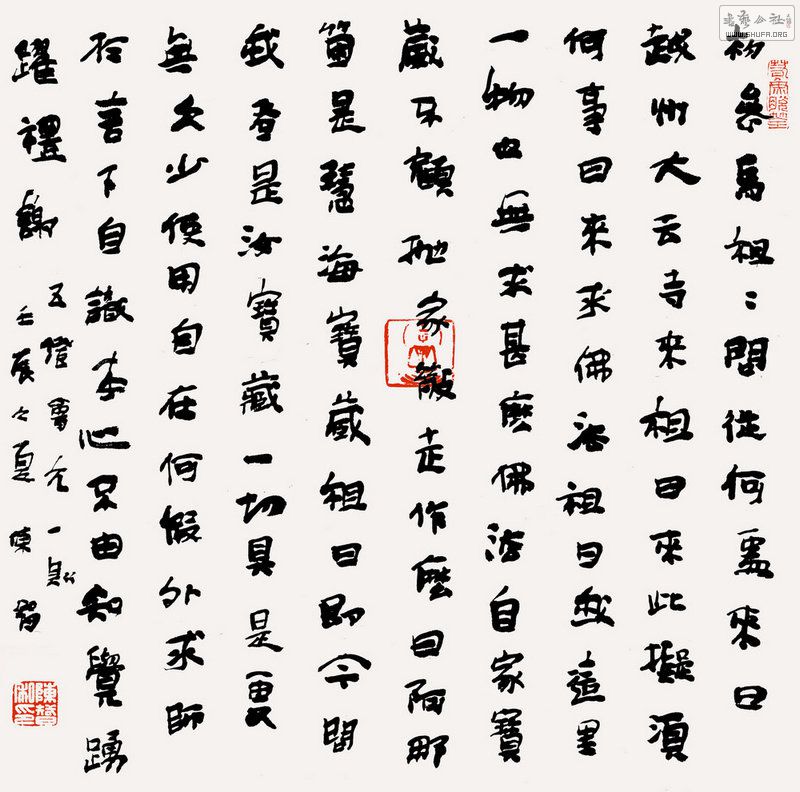 初參馬祖〻問從何處來曰
越州大云寺來祖曰來此擬須
何事曰來求佛法祖曰我這里
一物也無求甚麼佛法自家寶
藏不顧抛家散走作麼曰阿那
箇是慧海寶藏祖曰即今問
我者是汝寶藏一切具足更
無欠少使用自在何假外求師
於言下自識本心不由知覺踴
躍禮謝
五燈會元一則
壬辰之夏陳
書藝公社
WWW.SHUFA.ORG